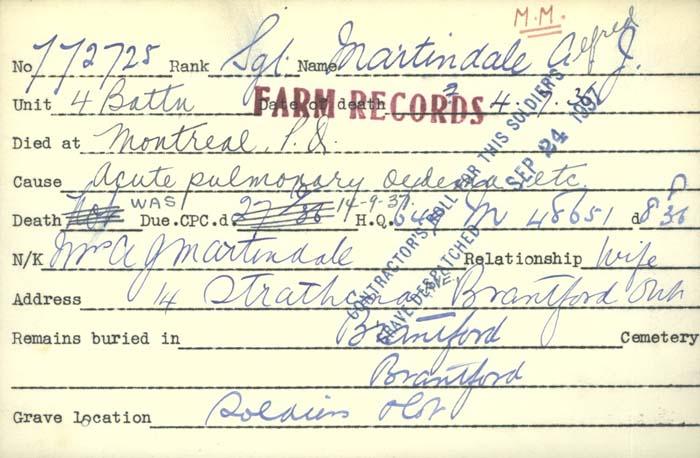 M.M.
No 772725 Rank Sgt. Name Martindale Alfred J.
Unit 4 Battn Date of death 4 36
FARM RECORDS
Died at Montreal, P.Q.
Cause Acute pulmonary oedema etc
Death Not WAS Due. CPC. d. 14-9-37. H.Q. 649 M 48651 d 8 36
N/K Mrs A J Martindale Relationship Wife
Address 14 Strathcona Ave Brantford Ont
Remains buried in Brantford Cemetery
Brantford
Grave location Soldiers Plot
CONTRACTOR'S ROLL FOR THIS SOLDIERS
GRAVE DESPATCHED SEP 24 1937